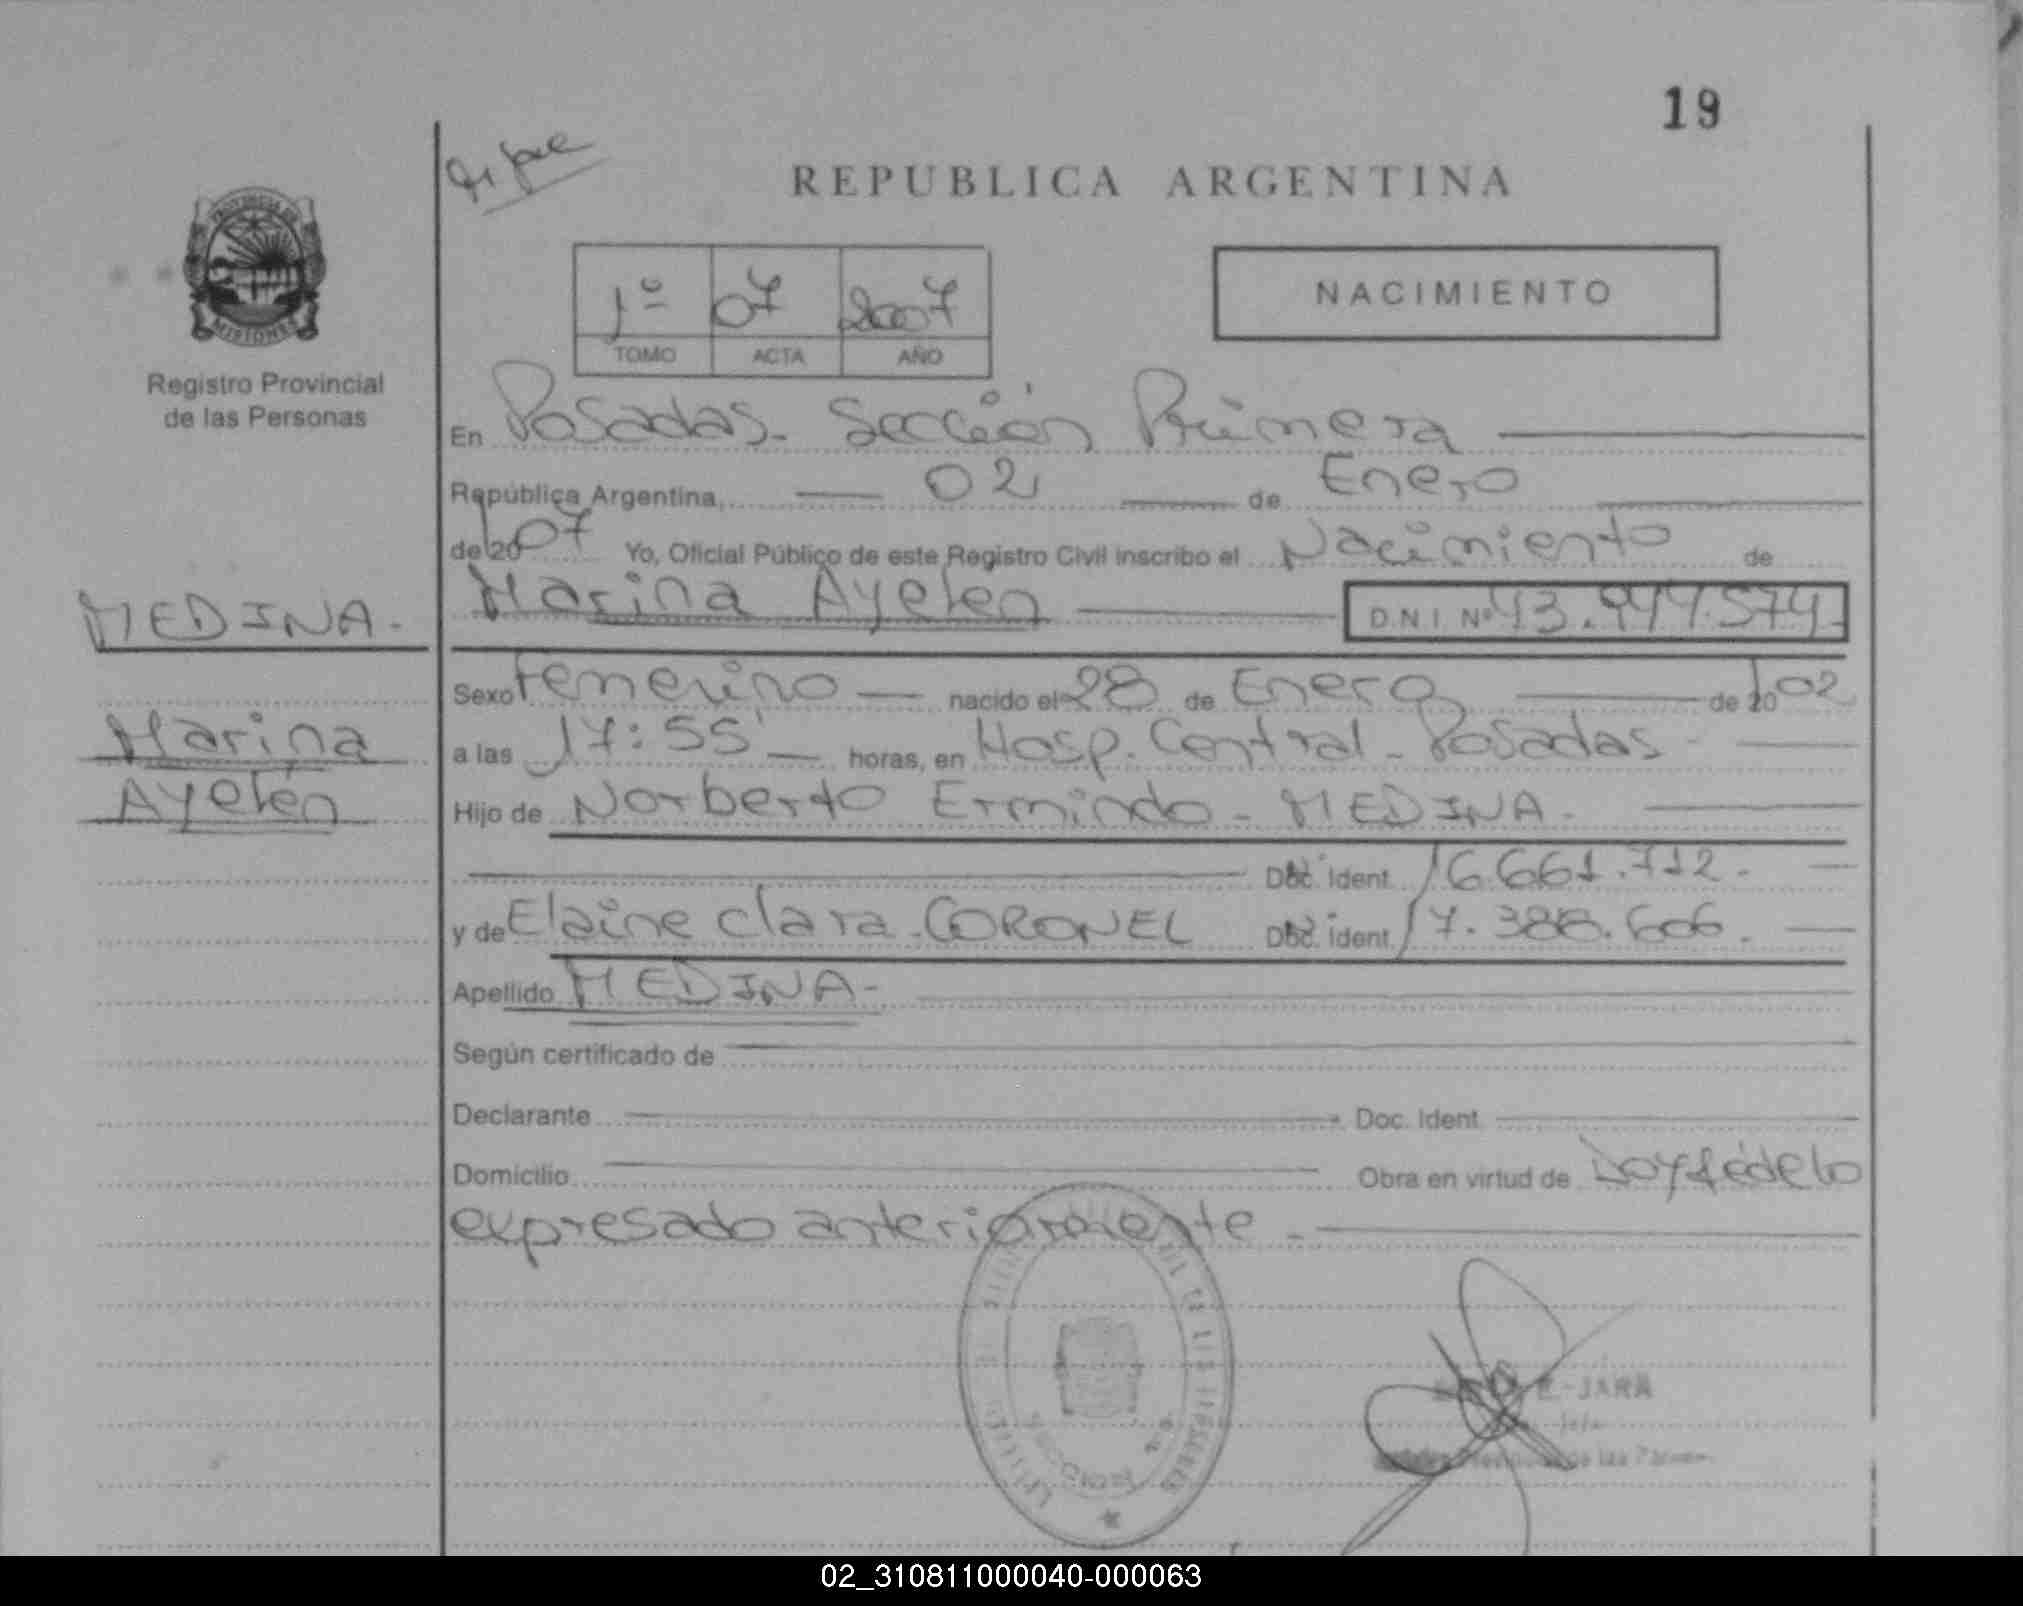 19
REPUBLICA ARGENTINA
PROVINCIA DE
MISIONES
Registro Provincial
de las Personas
1º 07 2007
TOMO ACTA AÑO
NACIMIENTO
En Posadas - Sección Primera
República Argentina, 02 de Enero
de 2007 Yo, Oficial Público de este Registro Civil inscribo el Nacimiento de
MEDINA.
Marina Ayelén D.N.I. Nº 43.944.574.
Sexo Femenino nacido el 28 de Enero de 2002
Marina
a las 17:55' horas, en Hosp. Central - Posadas
Ayelén
Hijo de Norberto Ermindo - MEDINA.
Doc. Ident. 16.661.712.
y de Elaine Clara CORONEL Doc. Ident. 17.388.606.
Apellido MEDINA-
Según certificado de
Declarante Doc. Ident.
Domicilio Obra en virtud de Doy fé de lo
expresado anteriormente.
JARA
02_310811000040-000063